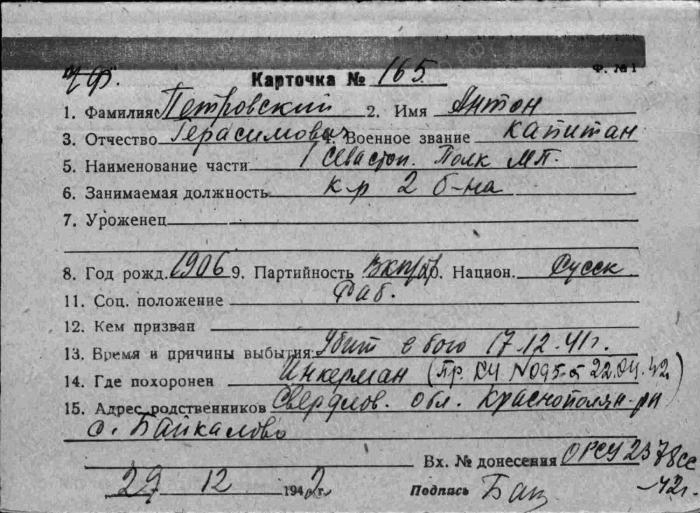 ЧФ. Карточка № 165 Ф. № 1
1. Фамилия Петровский 2. Имя Антон
3. Отчество Герасимович 4. Военное звание капитан
5. Наименование части 1 Севастоп. Полк МП.
6. Занимаемая должность к-р 2 б-на
7. Уроженец
8. Год рожд. 1906 9. Партийность ВКП(б) 10. Национ. Русск
11. Соц. положение Раб.
12. Кем призван
13. Время и причины выбытия: Убит в бою 17.12.41г.
14. Где похоронен Инкерман (Пр. 22.04.42)
15. Адрес родственников Свердлов. обл. Краснополян. р-н
с. Байкалово
Вх. № донесения ОРСУ 2378сс
29 12 1942г. Подпись 42г.